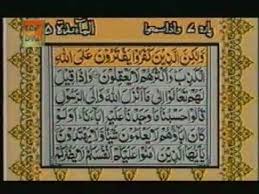 پاره ۷ واذا سمعوا المآئدة ۵
وَلٰكِنَّ الَّذِيْنَ كَفَرُوْا يَفْتَرُوْنَ عَلَى اللّٰهِ
الْكَذِبَ وَاَكْثَرُهُمْ لَا يَعْقِلُوْنَ وَاِذَا قِيْلَ
لَهُمْ تَعَالَوْا اِلٰى مَآ اَنْزَلَ اللّٰهُ وَاِلَى الرَّسُوْلِ
قَالُوْا حَسْبُنَا مَا وَجَدْنَا عَلَيْهِ اٰبَآءَنَا اَوَلَوْ كَانَ
اٰبَآؤُهُمْ لَا يَعْلَمُوْنَ شَيْئًا وَّلَا يَهْتَدُوْنَ
يٰٓاَيُّهَا الَّذِيْنَ اٰمَنُوْا عَلَيْكُمْ اَنْفُسَكُمْ لَا يَضُرُّكُمْ